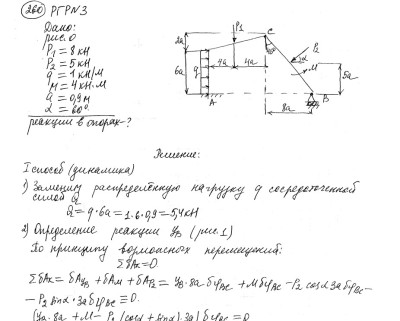 260 РГР №3
Дано:
рис. 0
P₁ = 8 кН
P₂ = 5 кН
q = 1 кН/м
M = 4 кН·м
a = 0,9 м
α = 60°
реакции в опорах - ?
2a
6a
q
A
P₁
4a
4a
C
P₂
α
M
5a
B
8a
Решение:
I способ (динамика)
1) Заменим распределённую нагрузку q сосредоточенной
силой Q
Q = q·6a = 1·6·0,9 = 5,4 кН
2) Определение реакции y_B (рис. 1)
По принципу возможных перемещений:
ΣδAк = 0
ΣδAк = δA_yB + δA_M + δA_P2 = y_B·8a·δφ_BC + Mδφ_BC - P₂ cosα 3aδφ_BC -
- P₂ sinα·3aδφ_BC = 0.
(y_B·8a + M - P₂(cosα + sinα)·3a)δφ_BC = 0